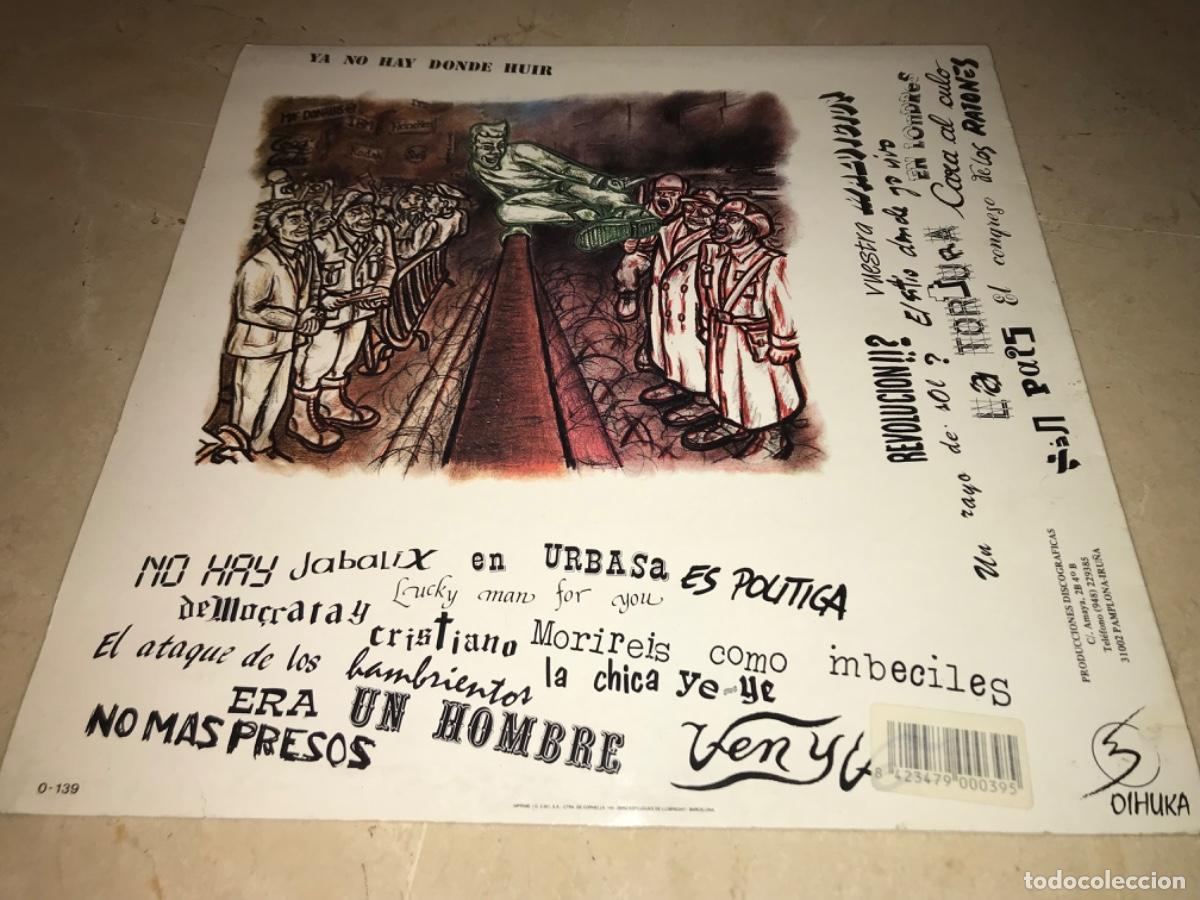 YA NO HAY DONDE HUIR
IBM
Heineken
Kodak
vuestra
REVOLUCION!!?
Esto donde yo vivo
EN LONDRES
Un rayo de sol?
LA TORTURA
Cara al culo
El congreso de los RATONES
país
NO HAY Jabalix en URBASA ES POLITIGA
deMocrata y Lucky man for you
cristiano Morireis como imbeciles
El ataque de los hambrientos la chica ye-ye
ERA UN HOMBRE
NO MAS PRESOS
Ven y
8 423479 000395
O-139
PRODUCCIONES DISCOGRAFICAS
C/. Amaya, 2B 4º B
Teléfono (948) 229385
31002 PAMPLONA-IRUÑA
OIHUKA
todocoleccion